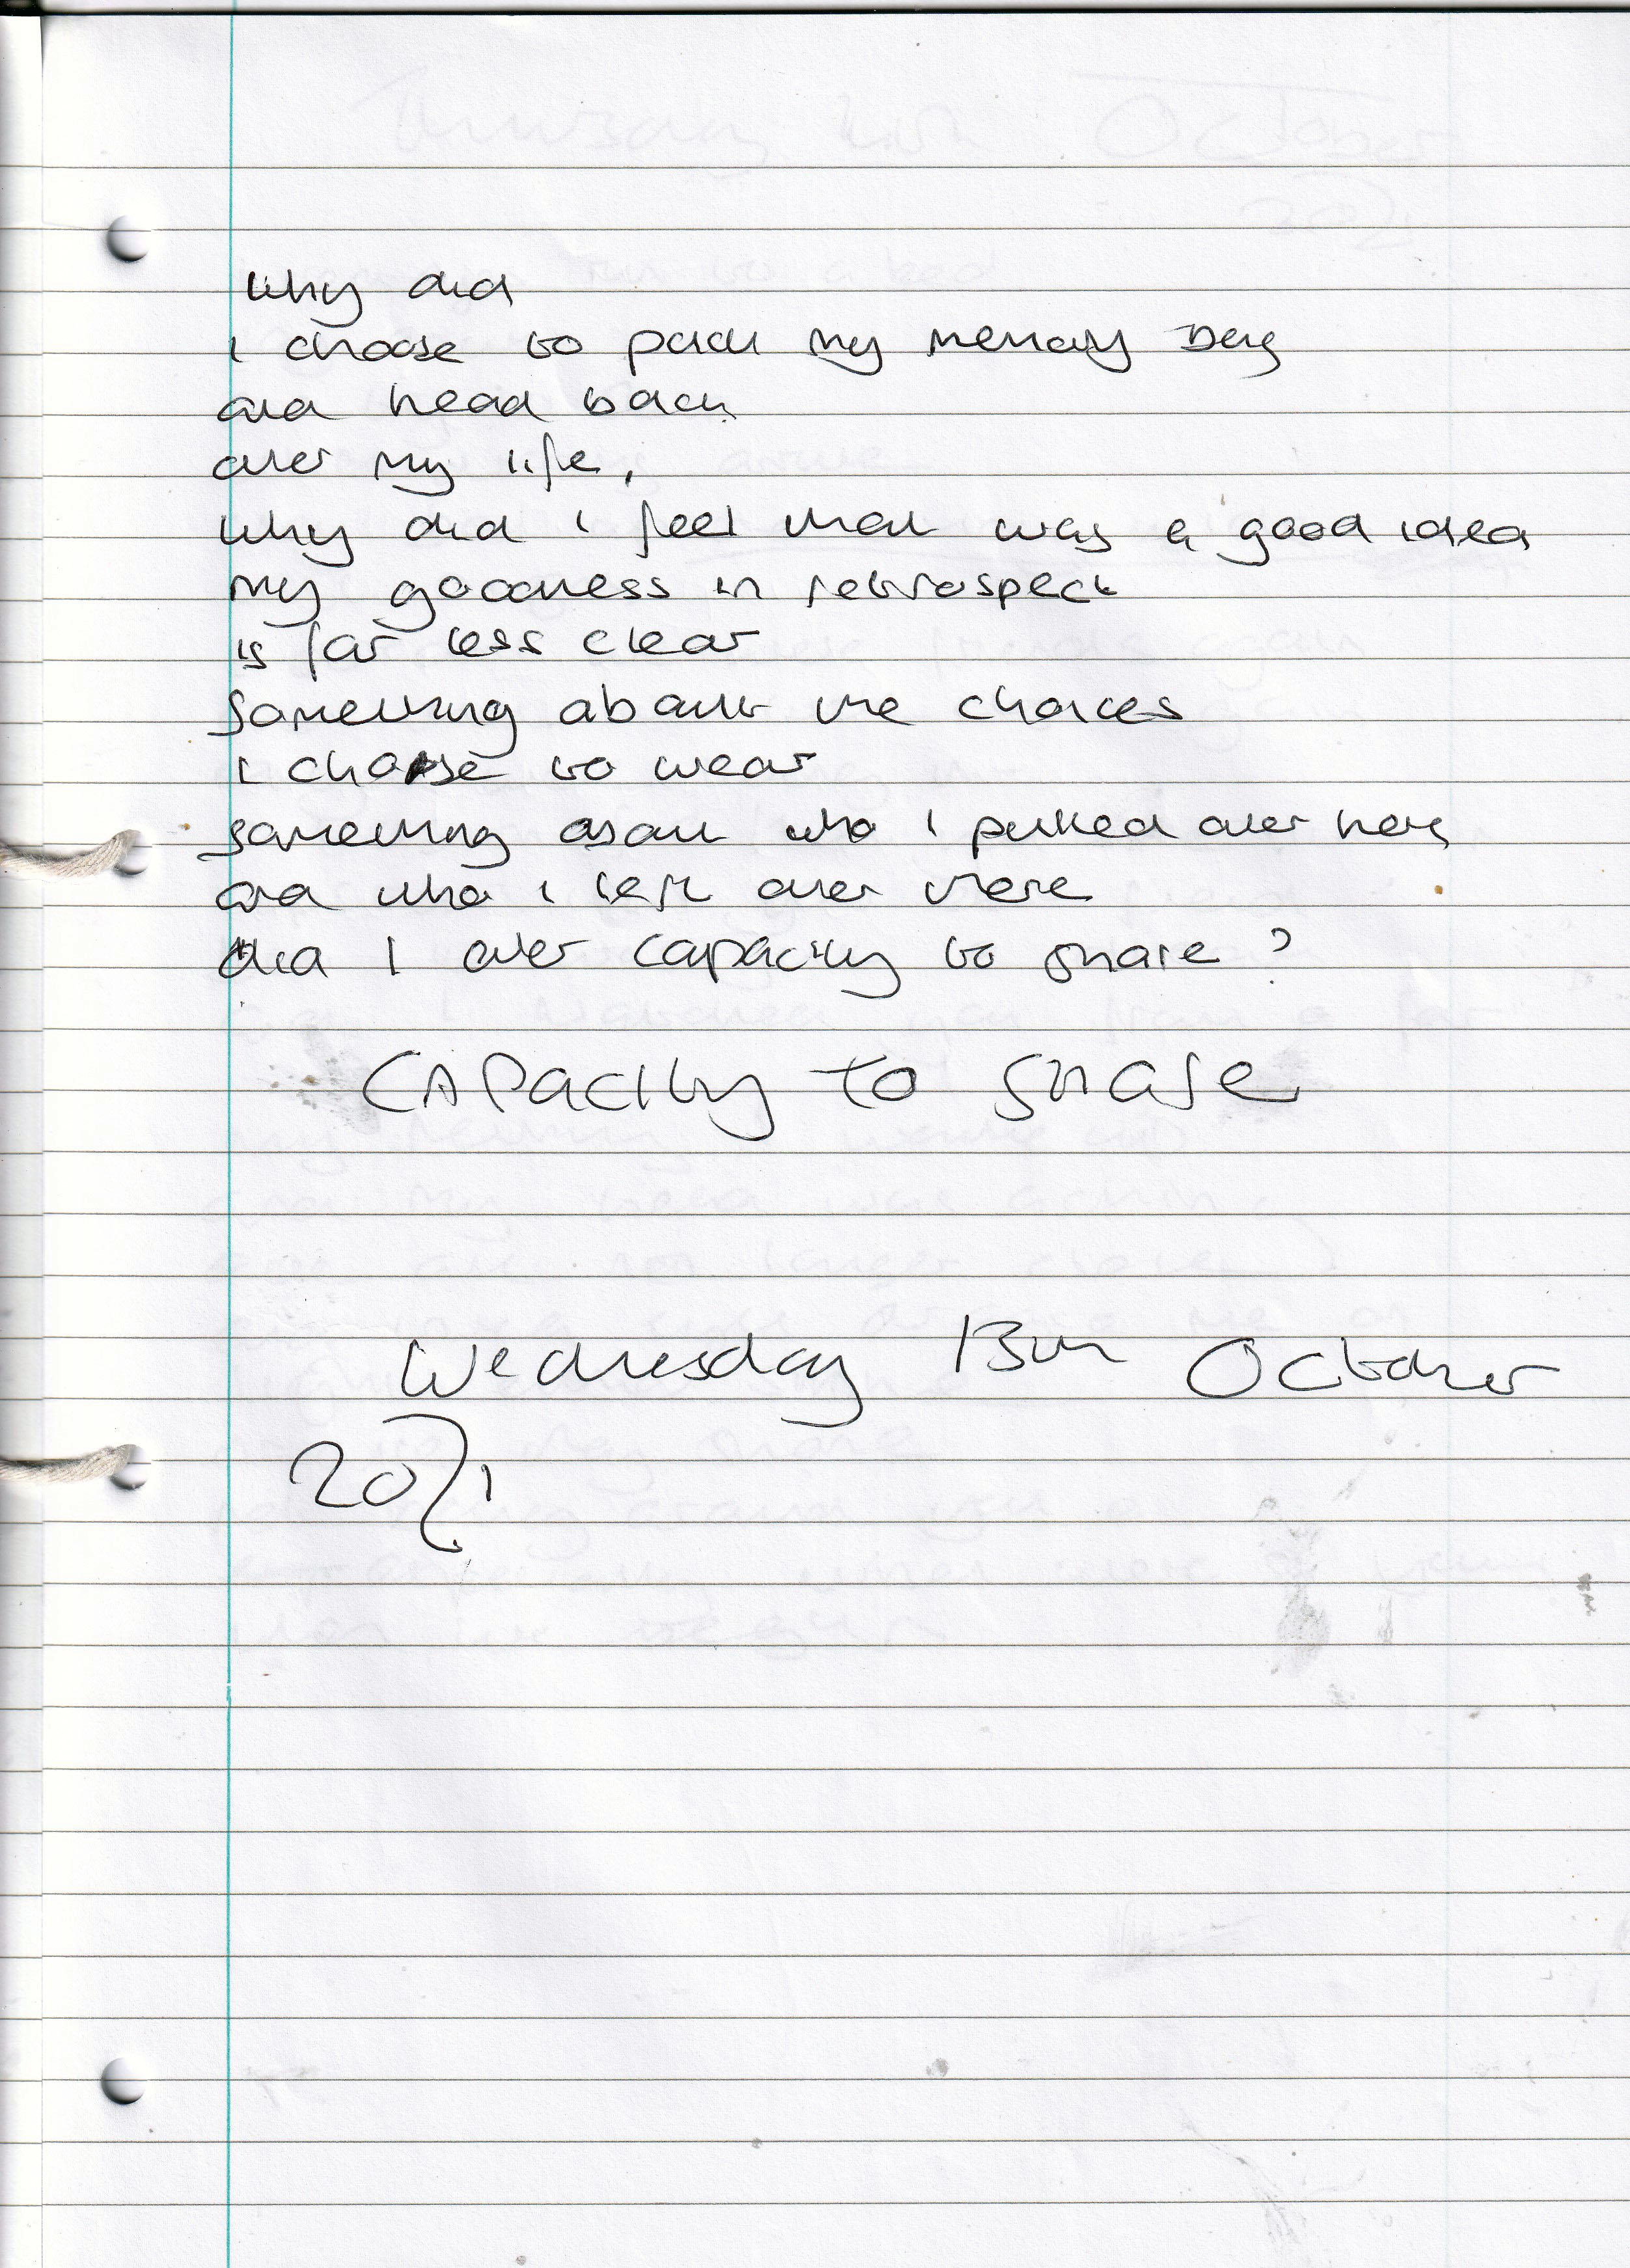 Why did
i choose to pack my memory Bag
and head back
over my life,
why did i feel that was a good idea
my goodness in retrospect
is far less clear
Something about the choices
i choose to wear
something about who i pulled over here
and who i left over there
did I over capacity to share?
CAPacity to share
Wednesday 13th October
2021